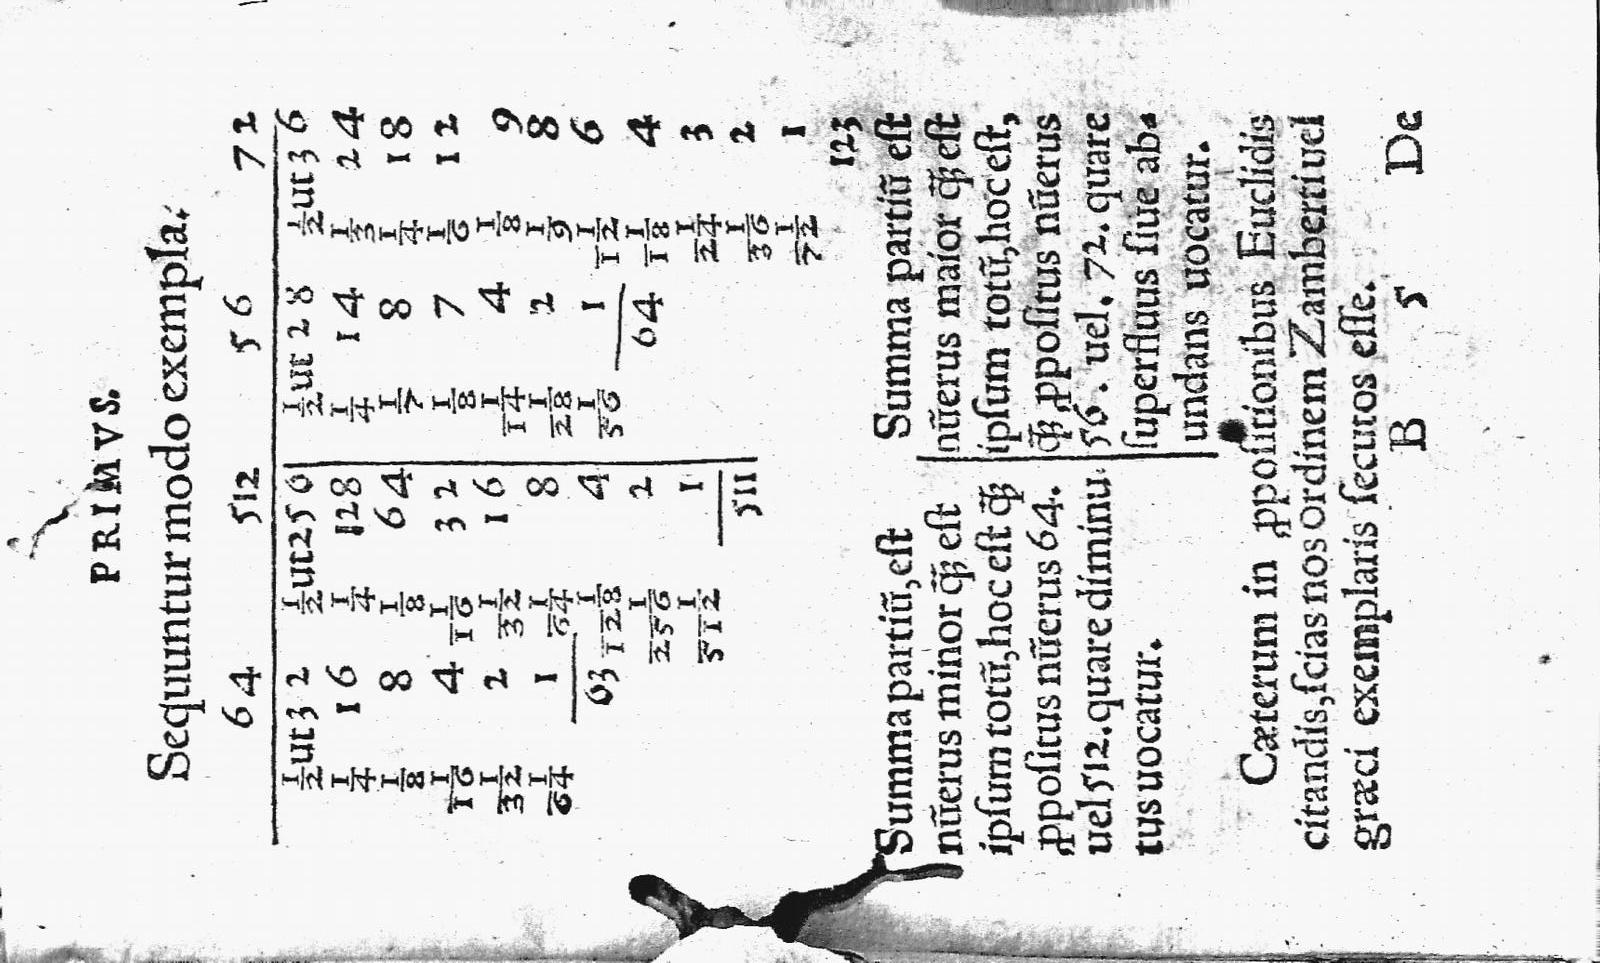 PRIMVS.
Sequuntur modo exempla.
64 512 56 72
1/2 ut 32 1/2 ut 256 1/2 ut 28 1/2 ut 36
1/4 16 1/4 128 1/4 14 1/3 24
1/8 8 1/8 64 1/7 8 1/4 18
1/16 4 1/16 32 1/8 7 1/6 12
1/32 2 1/32 16 1/14 4 1/8 9
1/64 1 1/64 8 1/28 2 1/9 8
63 1/128 4 1/56 1 1/12 6
1/256 2 64 1/18 4
1/512 1 1/24 3
511 1/36 2
1/72 1
123
Summa partiũ, eſt
nũerus minor ꝗ̃ eſt
ipſum totũ, hoc eſt ꝗ̃
ꝓpoſitus nũerus 64.
uel 512. quare diminu
tus uocatur.
Summa partiũ eſt
nũerus maior ꝗ̃ eſt
ipſum totũ, hoc eſt,
ꝗ̃ ꝓpoſitus nũerus
56. uel. 72. quare
ſuperfluus ſiue ab.
undans uocatur.
Cæterum in ꝓpoſitionibus Euclidis
citandis, ſcias nos ordinem Zamberti uel
græci exemplaris ſecutos eſſe.
B 5 De